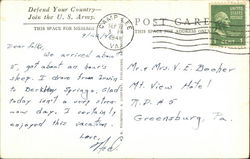 Defend Your Country—
Join the U. S. Army.
THIS SPACE FOR MESSAGE
POST CARD
THIS SPACE FOR ADDRESS ONLY
CAMP LEE
VA.
1¢
Dear
We arrived about
5, got about an hour's
sleep. I drove from
to Berkeley Springs. Glad
today isn't a very
now day. I certainly
enjoyed this vacation.
Love,
Mr. & Mrs. V. E. Booher
Mt. View Hotel
R. D. # 5
Greensburg, Pa.